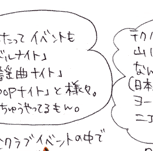 たって イベントも
ルナイト」
謡曲ナイト」
POPナイト」と 様々。
ちゅうやってるもん。
クラブイベントの中で
テク
山
なん
(日本
ヨー
ニュ